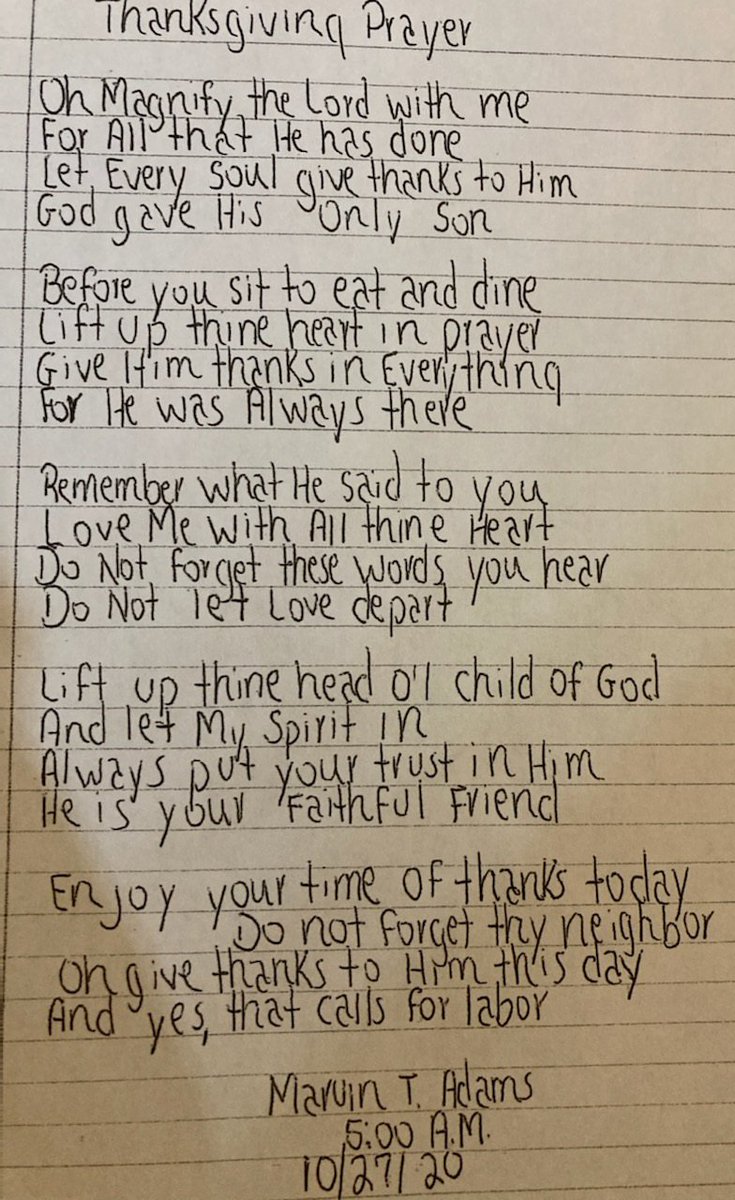 Thanksgiving Prayer
Oh Magnify the Lord with me
For All that He has done
Let Every Soul give thanks to Him
God gave His Only Son
Before you sit to eat and dine
Lift up thine heart in prayer
Give Him thanks in Everything
For He was Always there
Remember what He said to you
Love Me With All thine Heart
Do Not forget these words you hear
Do Not let Love depart
Lift up thine head o'l child of God
And let My Spirit in
Always put your trust in Him
He is your Faithful Friend
Enjoy your time of thanks today
Do not forget thy neighbor
Oh give thanks to Him this day
And yes, that calls for labor
Marvin T. Adams
5:00 A.M.
10/27/20